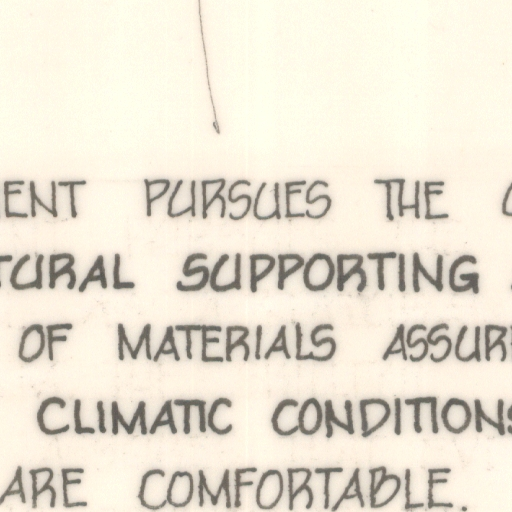 PURSUES THE
SUPPORTING
OF MATERIALS
CLIMATIC CONDITIONS
ARE COMFORTABLE.